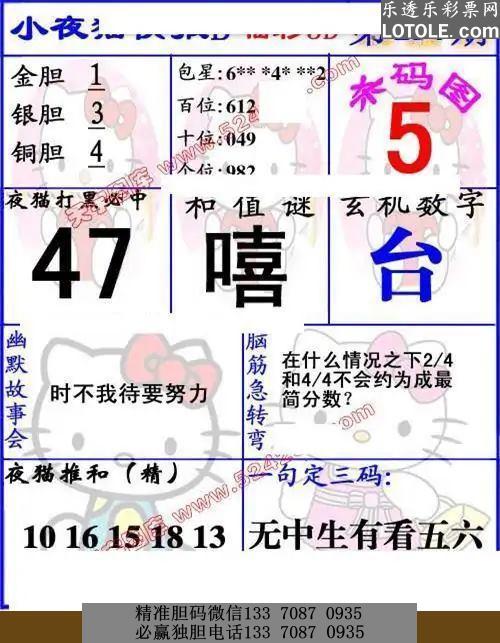 乐透乐彩票网
LOTOLE.COM
小夜猫
福彩3D
第
期
金胆 1
银胆 3
铜胆 4
包星:6** *4* **2
百位:612
十位:049
个位:982
杀码图
5
夜猫打黑必中
47
和值谜
嘻
玄机数字
台
幽默故事会
时不我待要努力
脑筋急转弯
在什么情况之下2/4
和4/4不会约为成最
简分数?
夜猫推和(精)
10 16 15 18 13
一句定三码:
无中生有看五六
精准胆码微信133 7087 0935
必赢独胆电话133 7087 0935